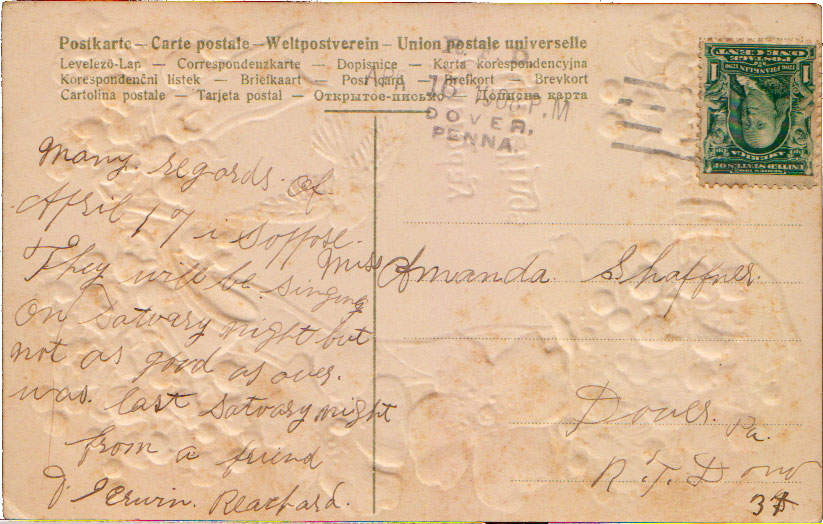 Postkarte – Carte postale – Weltpostverein – Union postale universelle
Levelező-Lap — Correspondenzkarte — Dopisnice — Karta korespondencyjna
Korespondenční lístek — Briefkaart — Post card — Brefkort — Brevkort
Cartolina postale — Tarjeta postal — Открытое-письмо — Дописна карта
DOVER,
PENNA.
P.M
ONE CENT
1 1
many regards of
April 17 i soppose.
They will be singing
on Satvary night but
not as good as over.
was. last satvary night
from a friend
Reachard.
Miss Amanda Shaffner.
Dover. Pa.